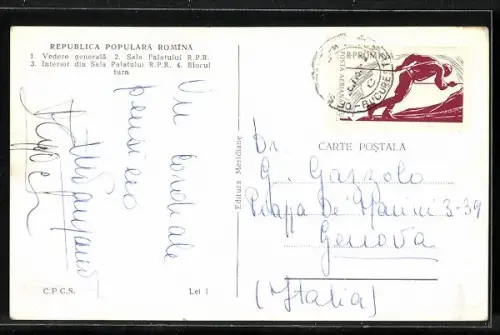 REPUBLICA POPULARĂ ROMÎNĂ
1. Vedere generală 2. Sala Palatului R.P.R.
3. Interior din Sala Palatului R.P.R. 4. Blocul
turn
Un cordiale
pensiero
C.P.C.S.
Lei 1
Editura Meridiane
R.P.ROMINA
POSTA AERIANA
BUCUREȘTI
CARTE POȘTALĂ
Dr.
G. Gazzolo
Piazza De Marini 3-39
Genova
(Italia)